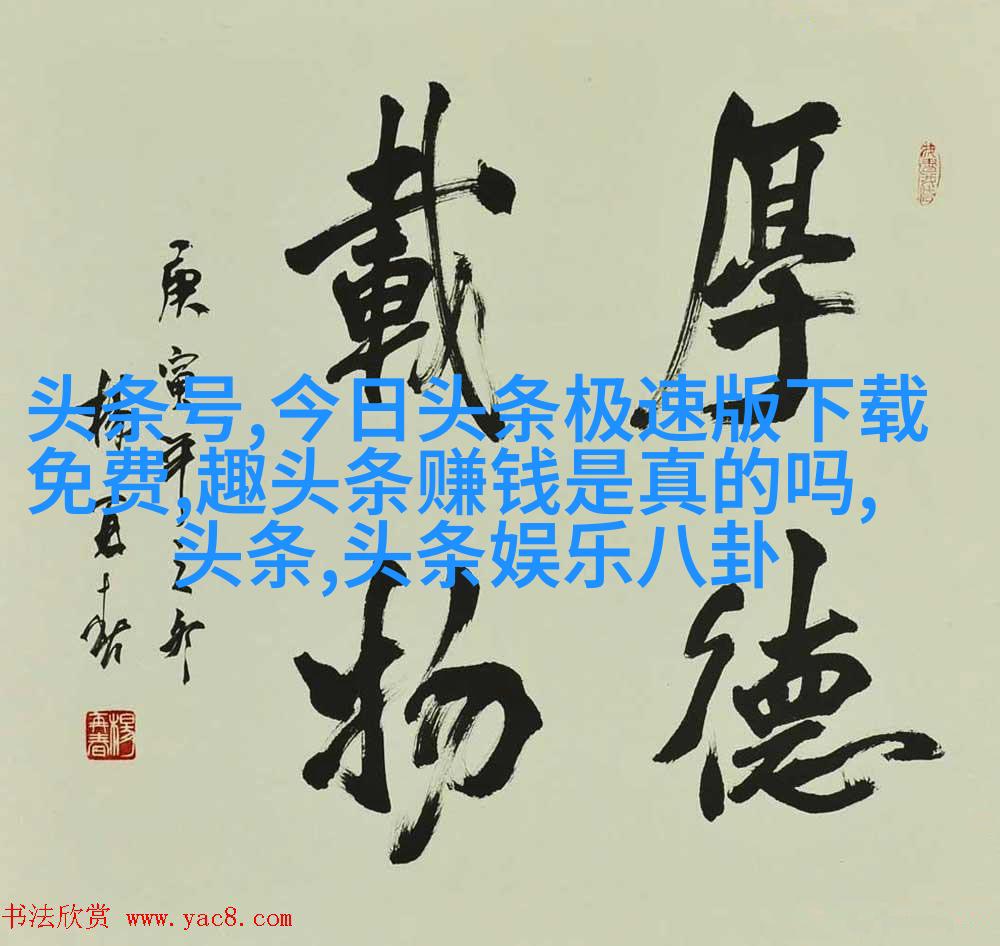 厚德
載物
庚寅年之卯
楊再春
楊再春
头条号,今日头条极速版下载
免费,趣头条赚钱是真的吗,
头条,头条娱乐八卦
书法欣赏 www.yac8.com